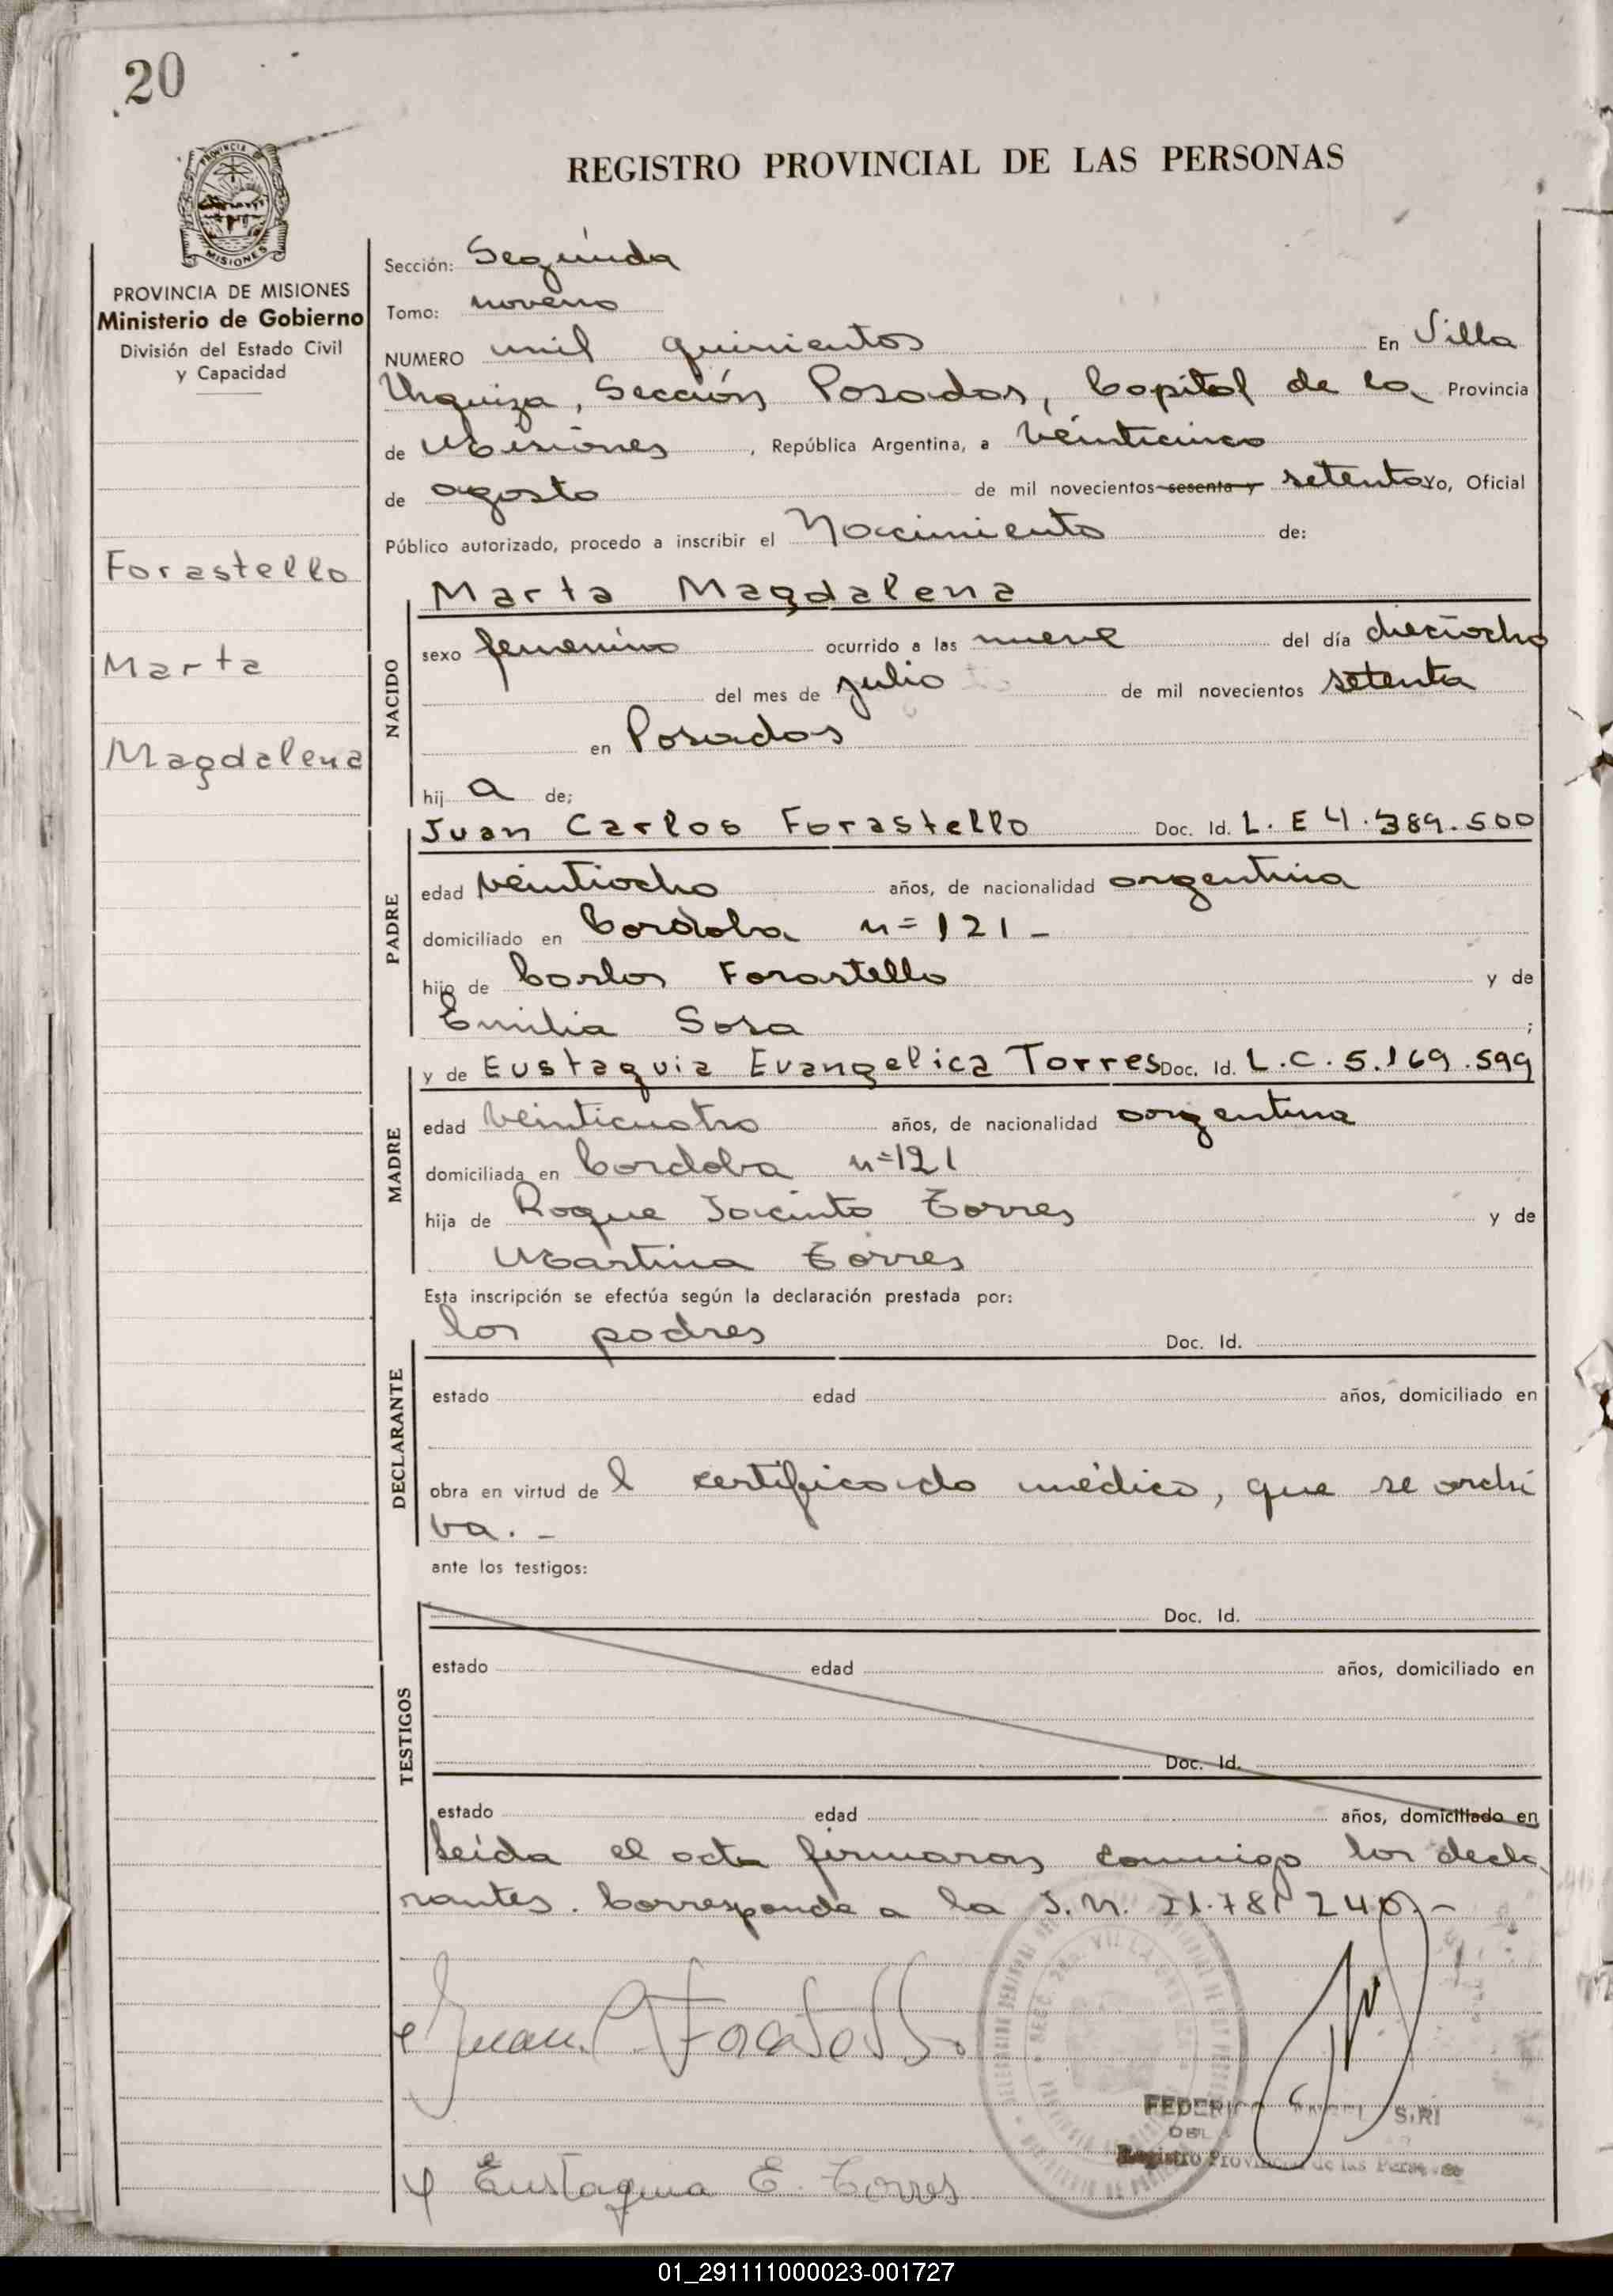 20
PROVINCIA DE
MISIONES
PROVINCIA DE MISIONES
Ministerio de Gobierno
División del Estado Civil
y Capacidad
Forastello
Marta
Magdalena
REGISTRO PROVINCIAL DE LAS PERSONAS
Sección: Segunda
Tomo: noveno
NUMERO mil quinientos En Villa
Urquiza, Sección Posadas, Capital de la Provincia
de Misiones, República Argentina, a veinticinco
de agosto de mil novecientos sesenta y setenta Yo, Oficial
Público autorizado, procedo a inscribir el Nacimiento de:
NACIDO
Marta Magdalena
sexo femenino ocurrido a las nueve del día dieciocho
del mes de julio de mil novecientos setenta
en Posadas
hij a de;
PADRE
Juan Carlos Forastello Doc. Id. L. E 4.389.500
edad veintiocho años, de nacionalidad argentina
domiciliado en Cordoba n= 121 -
hijo de Carlos Forastello y de
Emilia Sosa ;
MADRE
y de Eustaquia Evangelica Torres Doc. Id. L.C. 5.169.599
edad veinticuatro años, de nacionalidad argentina
domiciliada en Cordoba n=121
hija de Roque Jacinto Torres y de
Martina Torres
Esta inscripción se efectúa según la declaración prestada por:
DECLARANTE
los padres Doc. Id.
estado edad años, domiciliado en
obra en virtud de l certificado médico, que se archi
va. -
ante los testigos:
TESTIGOS
Doc. Id.
estado edad años, domiciliado en
Doc. Id.
estado edad años, domiciliado en
Leida el acta firmaron conmigo los decla
rantes. Corresponde a la I.N. 21.781 240.-
Juan C. Forastello
FEDERICO
Registro Provincial de las Personas
Eustaquia E. Torres
01_291111000023-001727